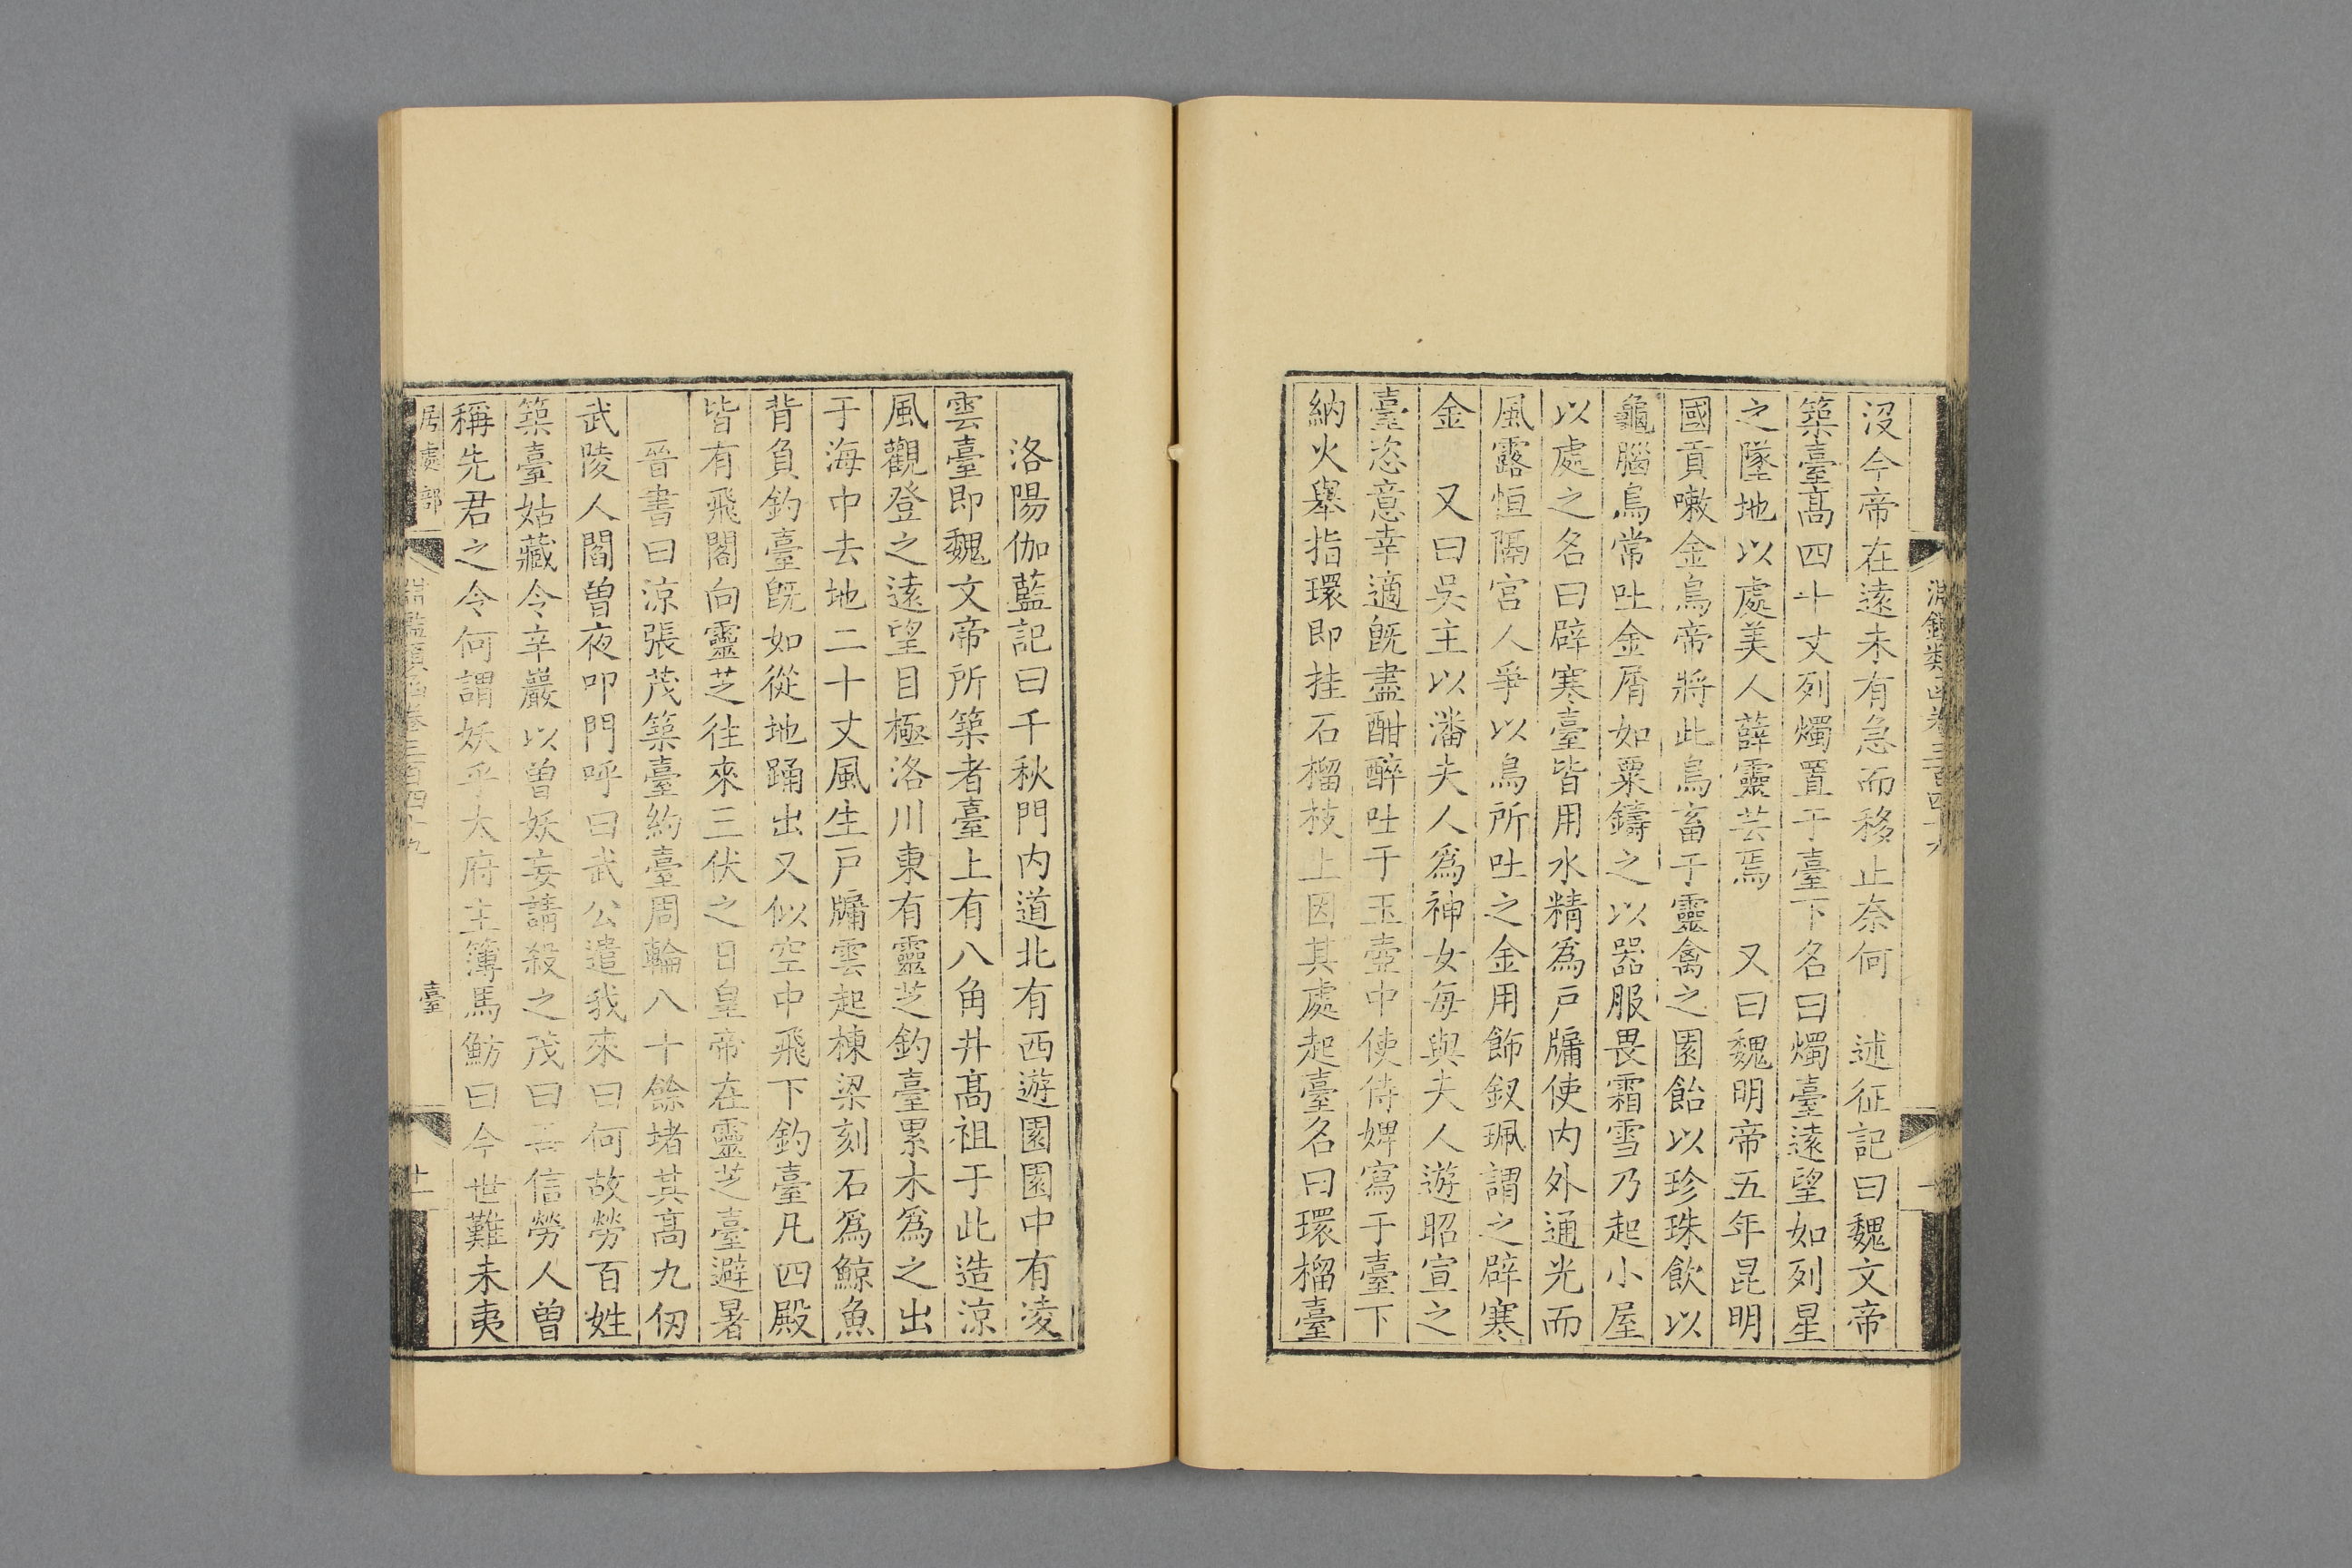 淵鑑類函卷三百四十九
沒今帝在遠未有急而移止奈何　述征記曰魏文帝
築臺高四十丈列燭置于臺下名曰燭臺遠望如列星
之墜地以處美人薛靈芸焉　又曰魏明帝五年昆明
國貢嗽金鳥帝將此鳥畜于靈禽之園飴以珍珠飲以
龜腦鳥常吐金屑如粟鑄之以器服畏霜雪乃起小屋
以處之名曰辟寒臺皆用水精爲戸牖使内外通光而
風露恒隔宫人爭以鳥所吐之金用飾釵珮謂之辟寒
金　又曰吳主以潘夫人爲神女每與夫人遊昭宣之
臺恣意幸適旣盡酣醉吐于玉壺中使侍婢寫于臺下
納火舉指環即挂石榴枝上因其處起臺名曰環榴臺
洛陽伽藍記曰千秋門内道北有西遊園園中有凌
雲臺即魏文帝所築者臺上有八角井高祖于此造涼
風觀登之遠望目極洛川東有靈芝釣臺累木爲之出
于海中去地二十丈風生戸牖雲起棟梁刻石爲鯨魚
背負釣臺旣如從地踊出又似空中飛下釣臺凡四殿
皆有飛閣向靈芝往來三伏之日皇帝在靈芝臺避暑
晉書曰涼張茂築臺約臺周輪八十餘堵其高九仞
武陵人閻曾夜叩門呼曰武公遣我來曰何故勞百姓
築臺姑藏令辛巖以曾妖妄請殺之茂曰吾信勞人曾
稱先君之令何謂妖乎太府主簿馬魴曰今世難未夷
居處部　臺　十一